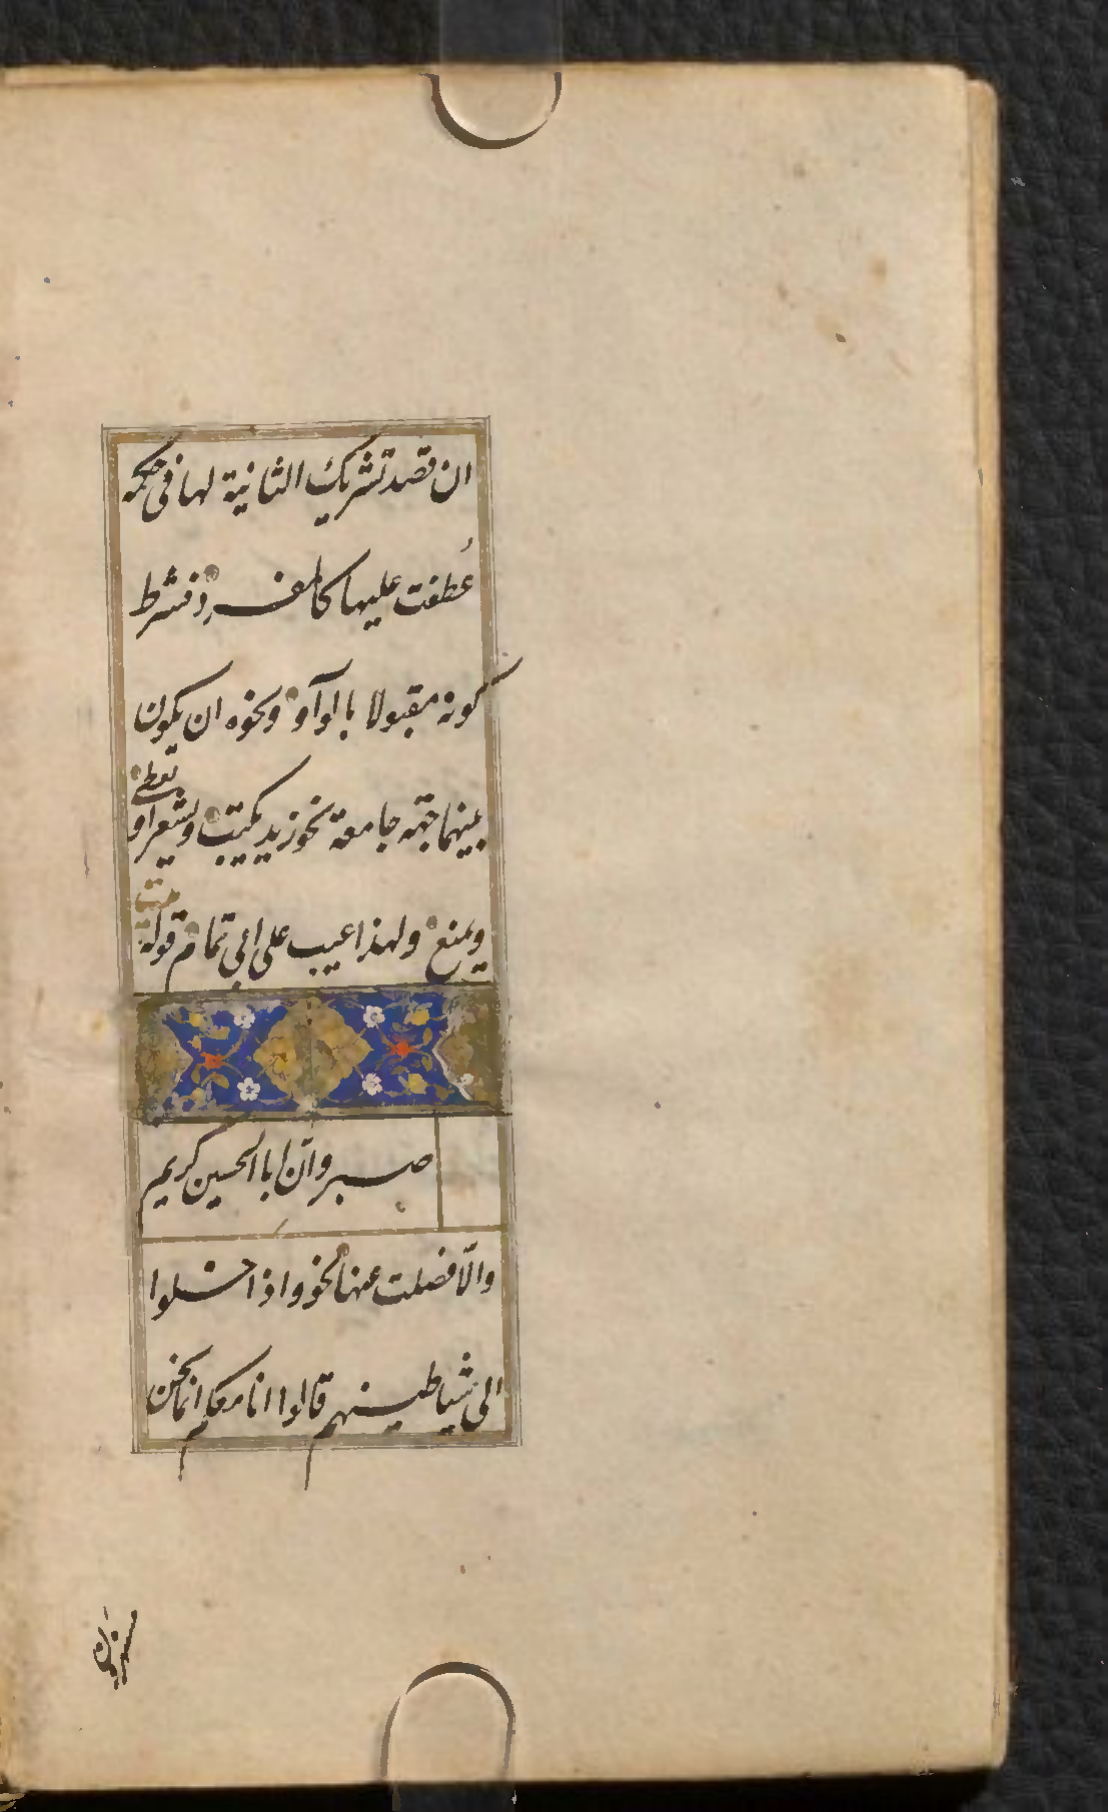 ان قصد تشريك الثانية لها فى حكمه
عُطفت عليها كالمفرد فشرط
كونه مقبولا بالواو ونحوه ان يكون
بينهما جهة جامعة نحو زيد يكتب ويشعر او
يعطى
ويمنع ولهذا عيب على ابى تمام قوله
صبر وانّ ابا الحسين كريم
والّا فصلت عنها نحو واذا خلوا
الى شياطينهم قالوا انا معكم انما نحن